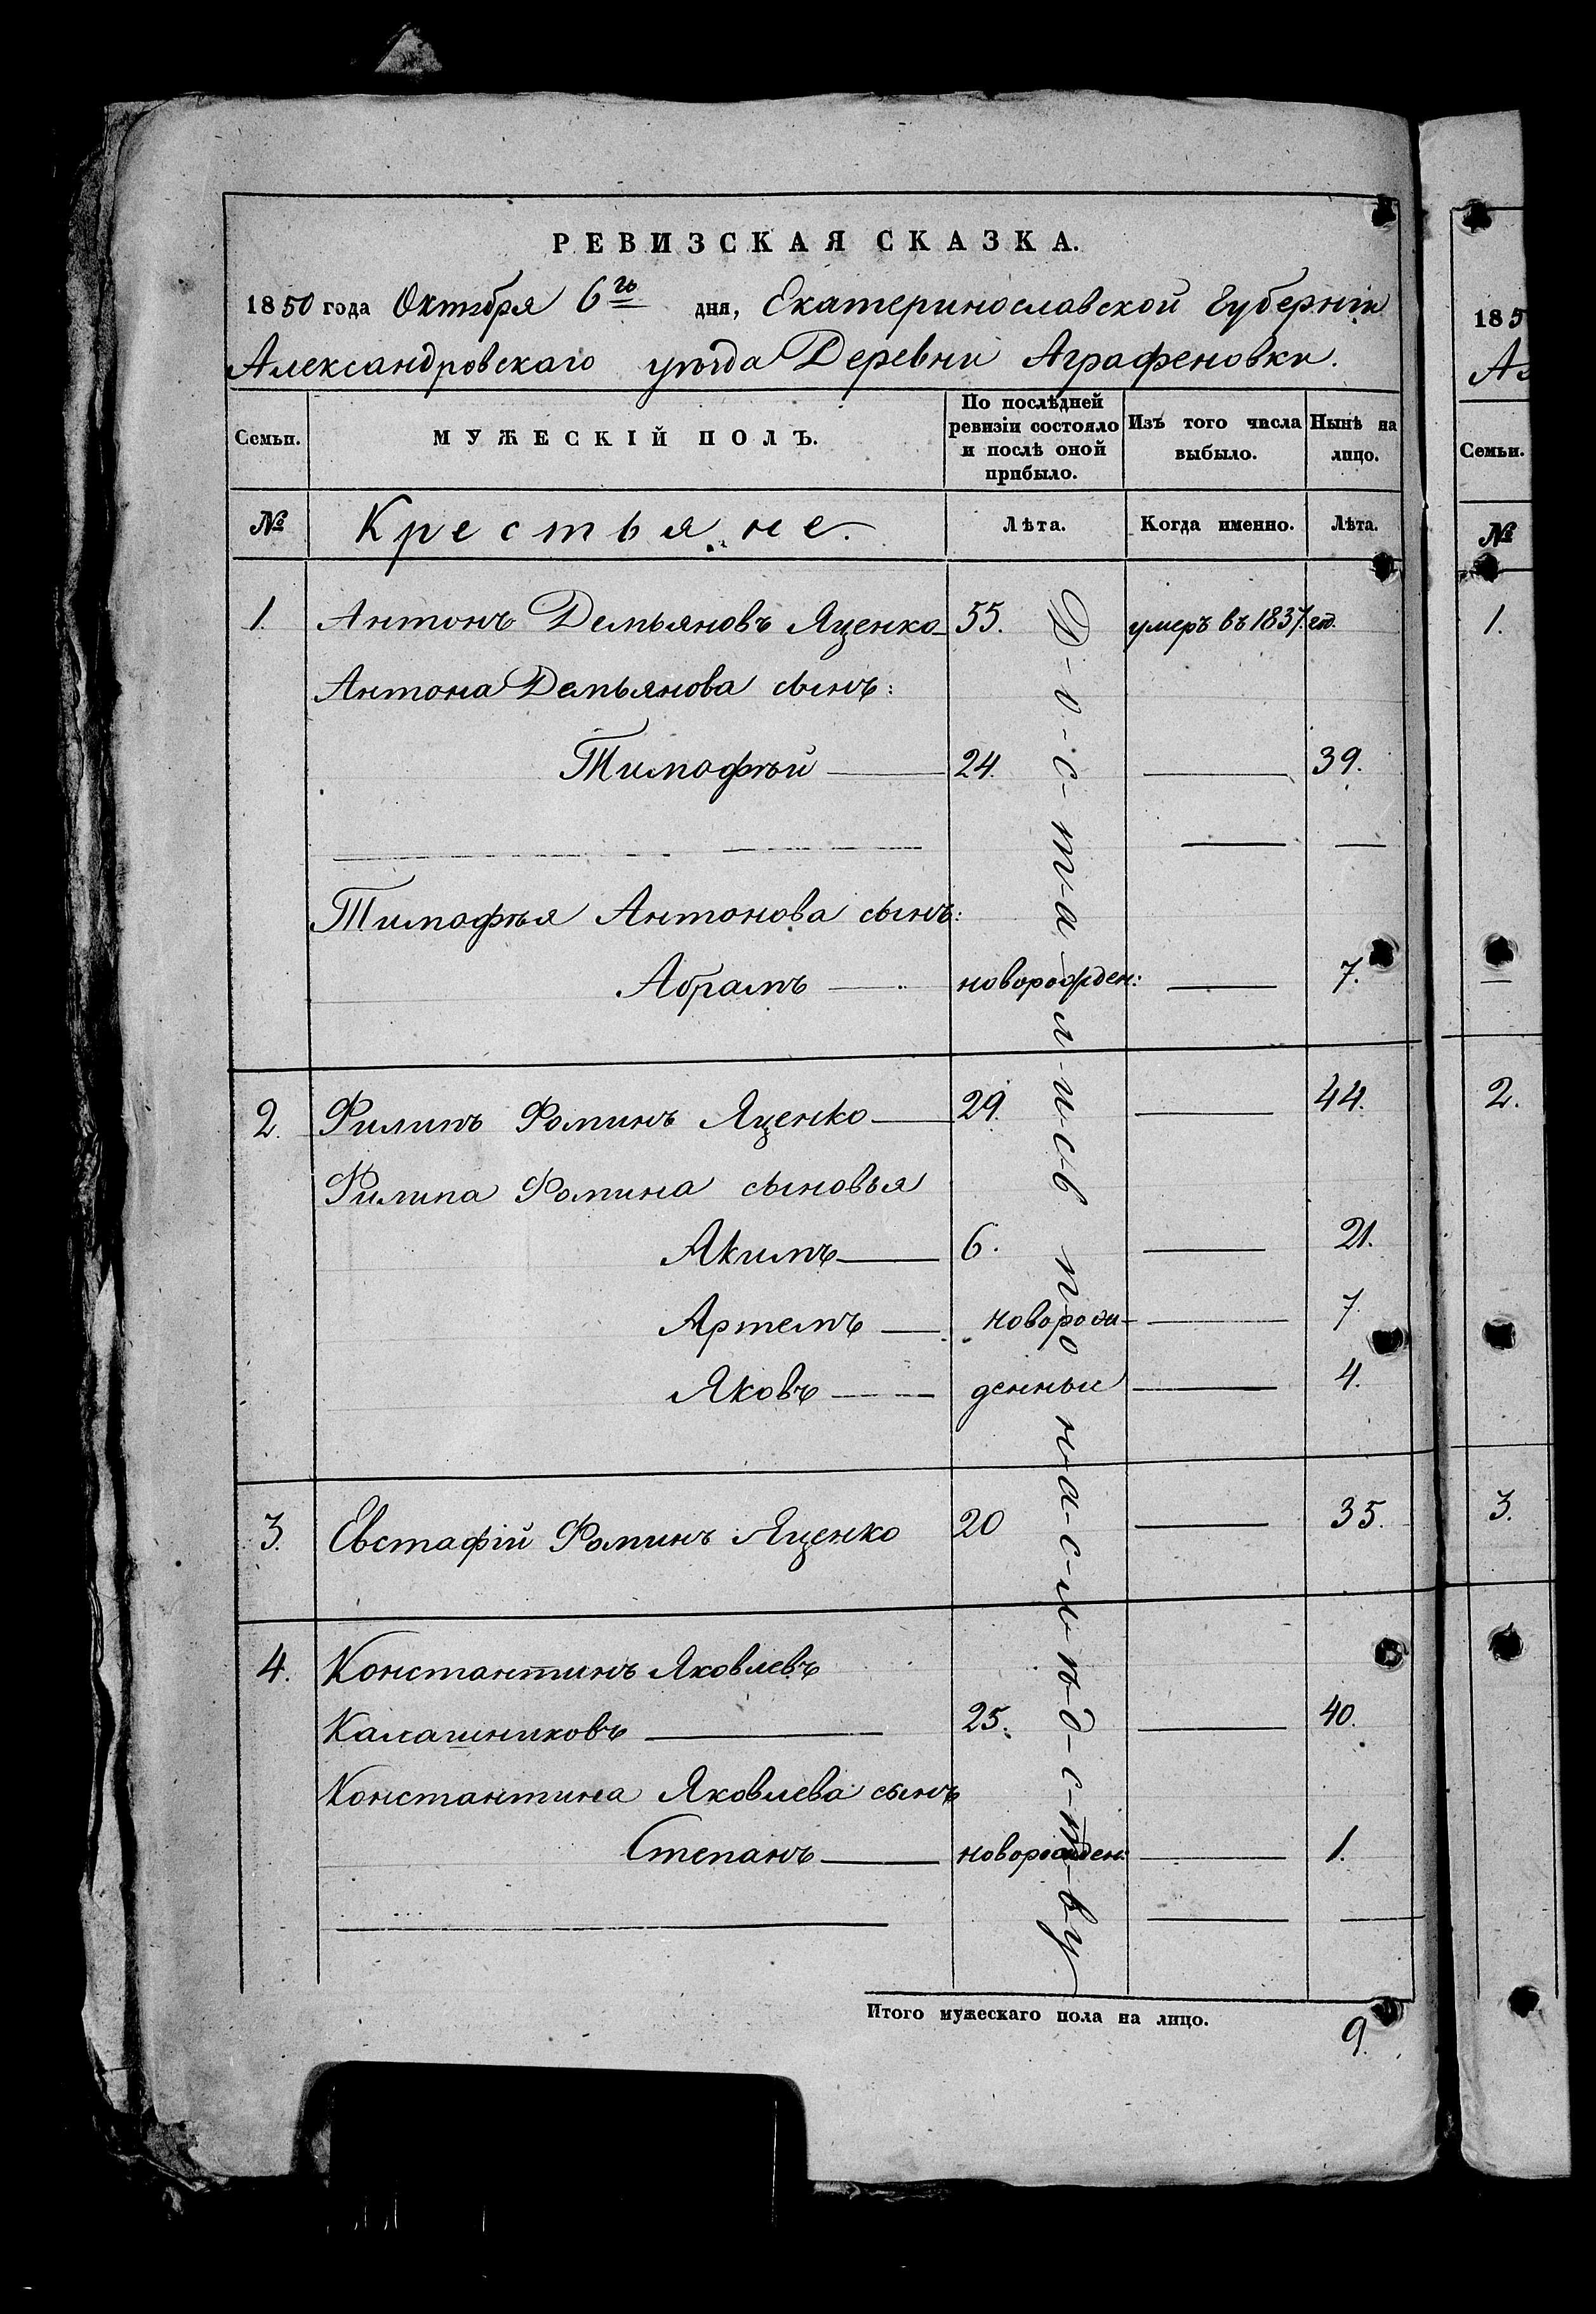 РЕВИЗСКАЯ СКАЗКА.
1850 года Октября 6го дня, Екатеринославской Губерніи
Александровскаго уѣзда Деревни Аграфеновки.
Семьи. МУЖЕСКІЙ ПОЛЪ. По послѣдней ревизіи состояло и послѣ оной прибыло. Изъ того числа выбыло. Нынѣ на лицо.
№ Крестьяне. Лѣта. Когда именно. Лѣта.
1. Антонъ Демьяновъ Яценко 55. умеръ въ 1837. год.
Антона Демьянова сынъ:
Тимофѣй 24. 39.
Тимофѣя Антонова сынъ:
Абрамъ новорожден: 7.
2. Филипъ Фоминъ Яценко 29. 44.
Филипа Фомина сыновья
Акимъ 6. 21.
Артемъ новорож- 7.
Яковъ денные 4.
3. Евстафій Фоминъ Яценко 20 35.
4. Константинъ Яковлевъ
Калашниковъ 25. 40.
Константина Яковлева сынъ
Степанъ новорожден: 1.
Д-о-с-т-а-л-и-с-ь п-о н-а-с-л-ѣ-д-с-т-в-у
Итого мужескаго пола на лицо. 9.
185
Семьи.
№
1.
2.
3.